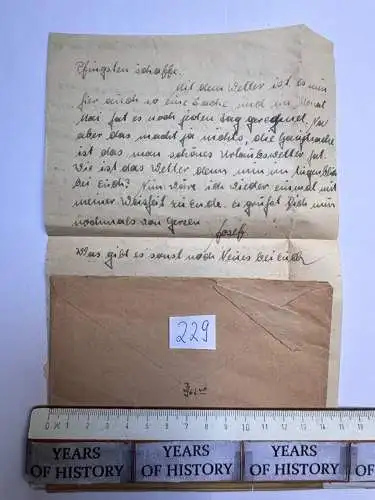 Pfingsten schaffe.
Mit dem Wetter ist es nun
hier auch so eine Sache, noch im Monat
Mai hat es noch jeden Tag geregnet. Na
aber das macht ja nichts, die Hauptsache
ist das man schönes Urlaubswetter hat.
Wie ist das Wetter denn nun im Augenblick
bei Euch? Nun wäre ich wieder einmal mit
meiner Weisheit zu Ende. Es grüßt Dich nun
nochmals von Herzen
Josef
Was gibt es sonst noch Neues bei Euch
229
0 1 2 3 4 5 6 7 8 9 10 11 12 13 14 15
YEARS OF HISTORY
YEARS OF HISTORY
YEARS OF HISTORY
YEARS
OF HIST